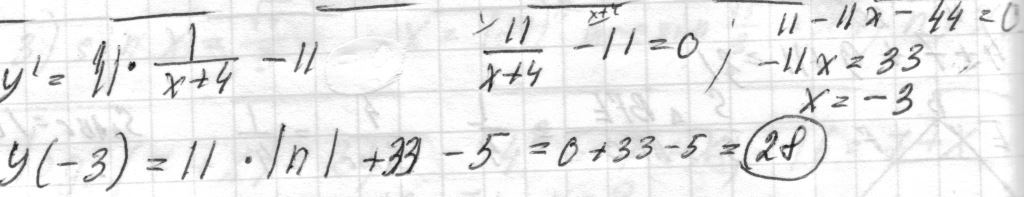 y' = 11 · 1/(x+4) - 11    11/(x+4) - 11 = 0 ; 11 - 11x - 44 = 0
-11x = 33
x = -3
y(-3) = 11 · ln 1 + 33 - 5 = 0 + 33 - 5 = 28